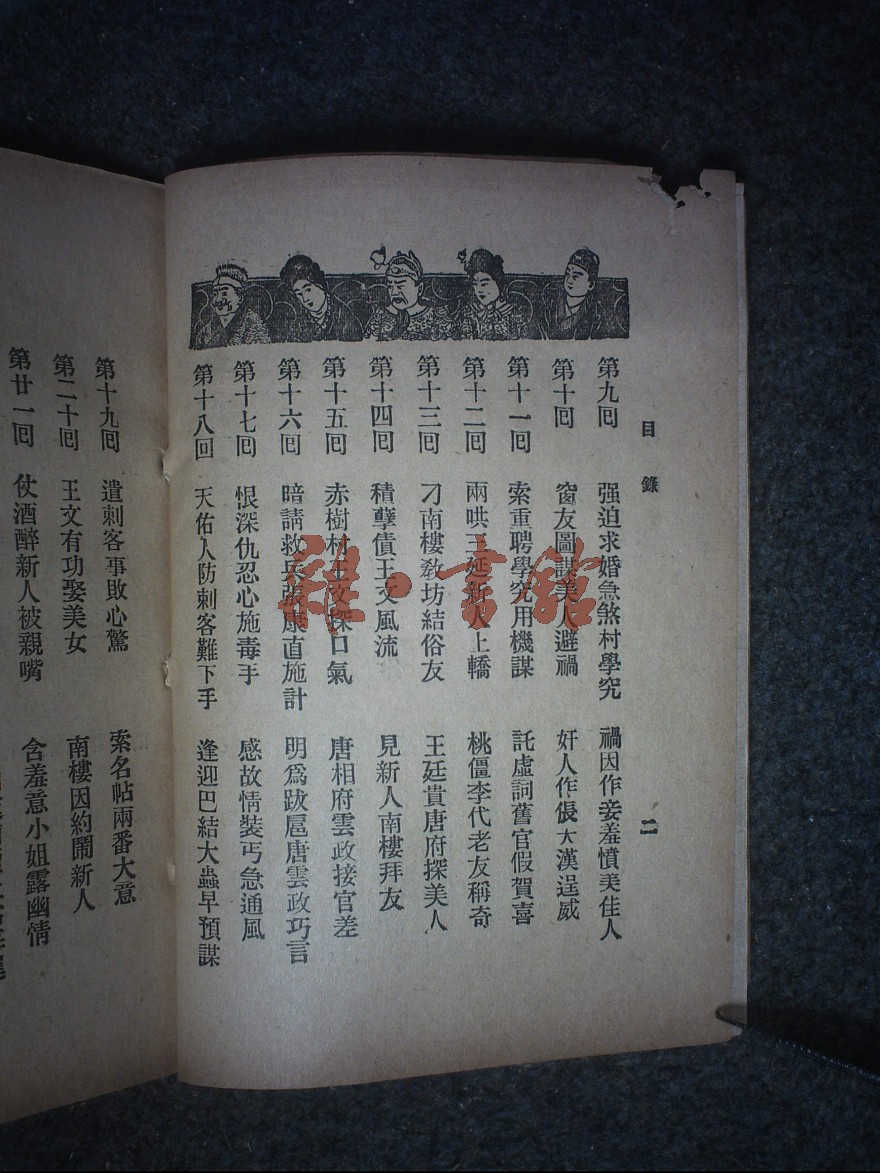 目錄 二
第九回 强迫求婚急煞村學究 禍因作妾羞憤美佳人
第十回 窗友圖謀美人避禍 奸人作倀大漢逞威
第十一回 索重聘學究用機謀 託虛詞舊官假賀喜
第十二回 兩哄三延新人上轎 桃僵李代老友稱奇
第十三回 刁南樓教坊結俗友 王廷貴唐府探美人
第十四回 積孽債王文風流 見新人南樓拜友
第十五回 赤樹村王文探口氣 唐相府雲政接官差
第十六回 暗請救兵張康直施計 明爲跋扈唐雲政巧言
第十七回 恨深仇忍心施毒手 感故情裝丐急通風
第十八回 天佑人防刺客難下手 逢迎巴結大蟲早預謀
第十九回 遣刺客事敗心驚 索名帖兩番大意
第二十回 王文有功娶美女 南樓因約鬧新人
第廿一回 仗酒醉新人被親嘴 含羞意小姐露幽情
雜·書館